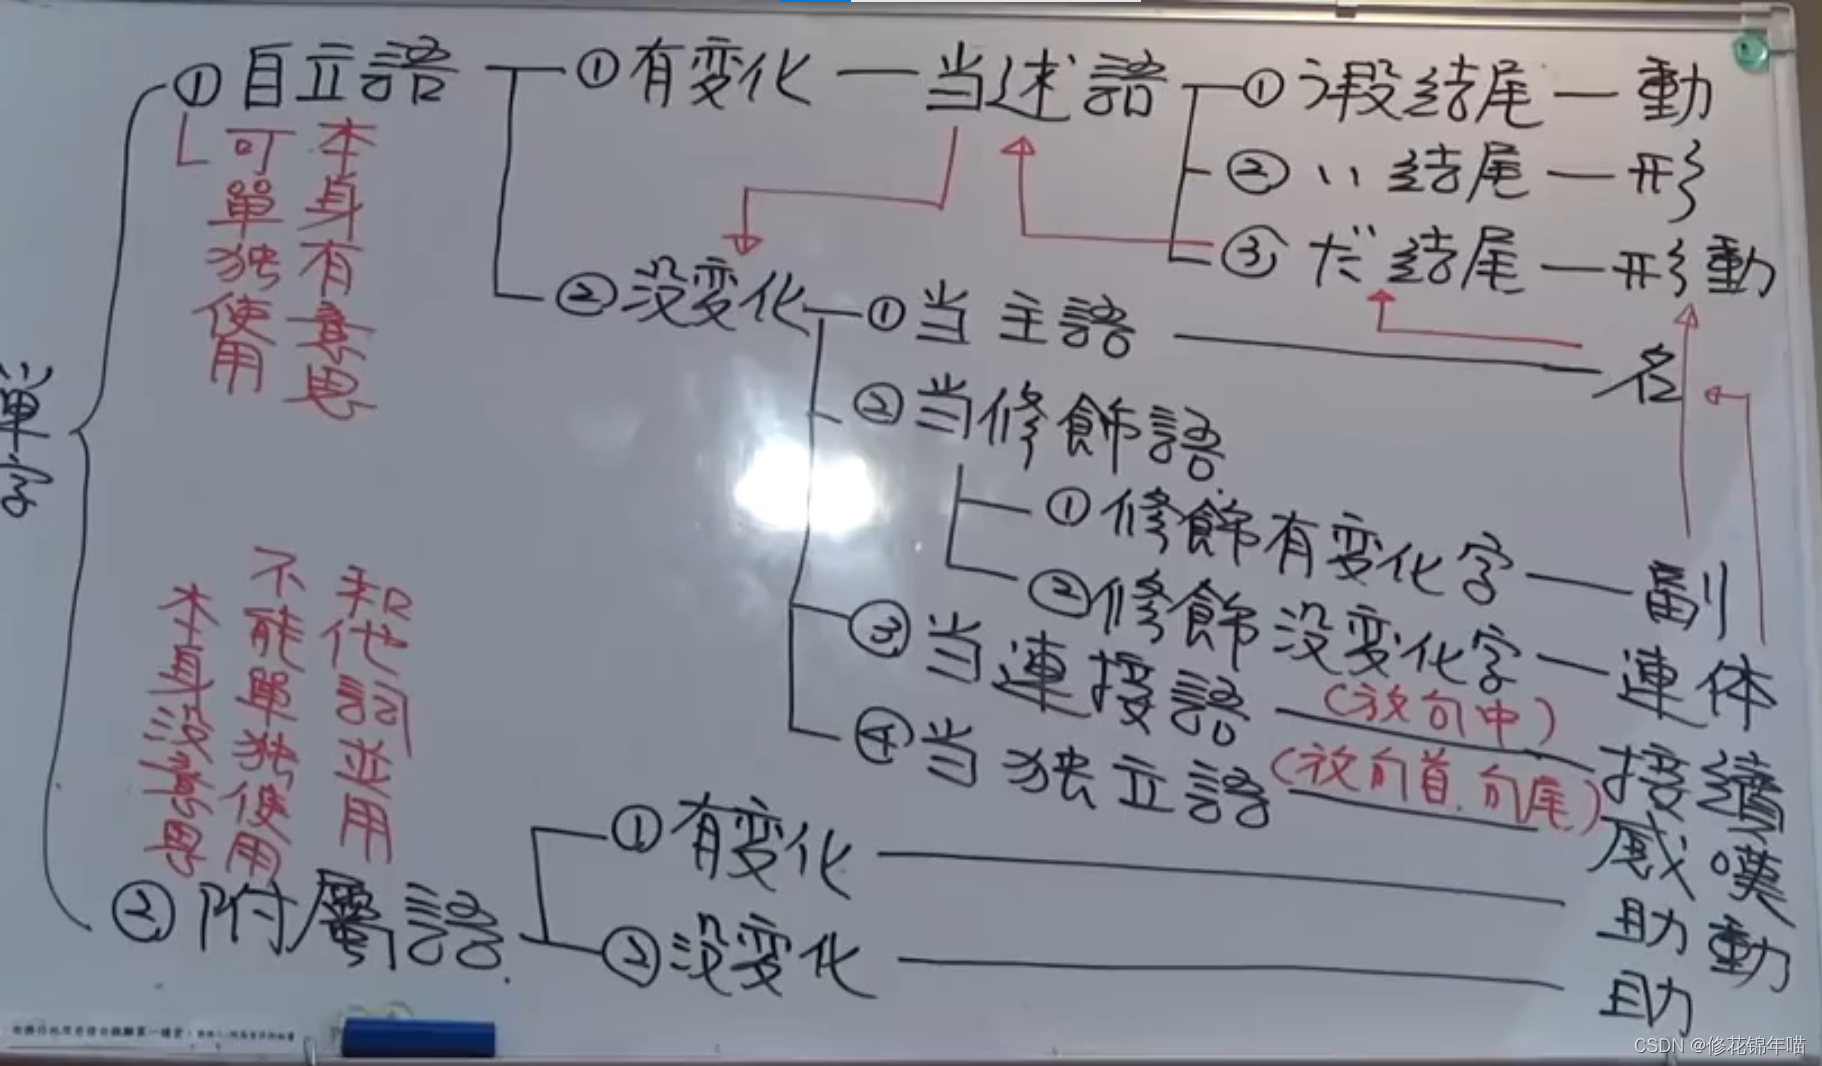 單字
①自立語
①有変化
当述語
①う段结尾
動
②い结尾
形
③だ结尾
形動
本身有意思
可單独使用
②没変化
①当主語
名
②当修飾語
①修飾有変化字
副
②修飾没変化字
連体
③当連接語
(放句中)
接續
④当独立語
(放句首.句尾)
感嘆
和他詞並用
不能單独使用
本身没意思
②附屬語
①有変化
助動
②没変化
助
CSDN @修花锦年喵